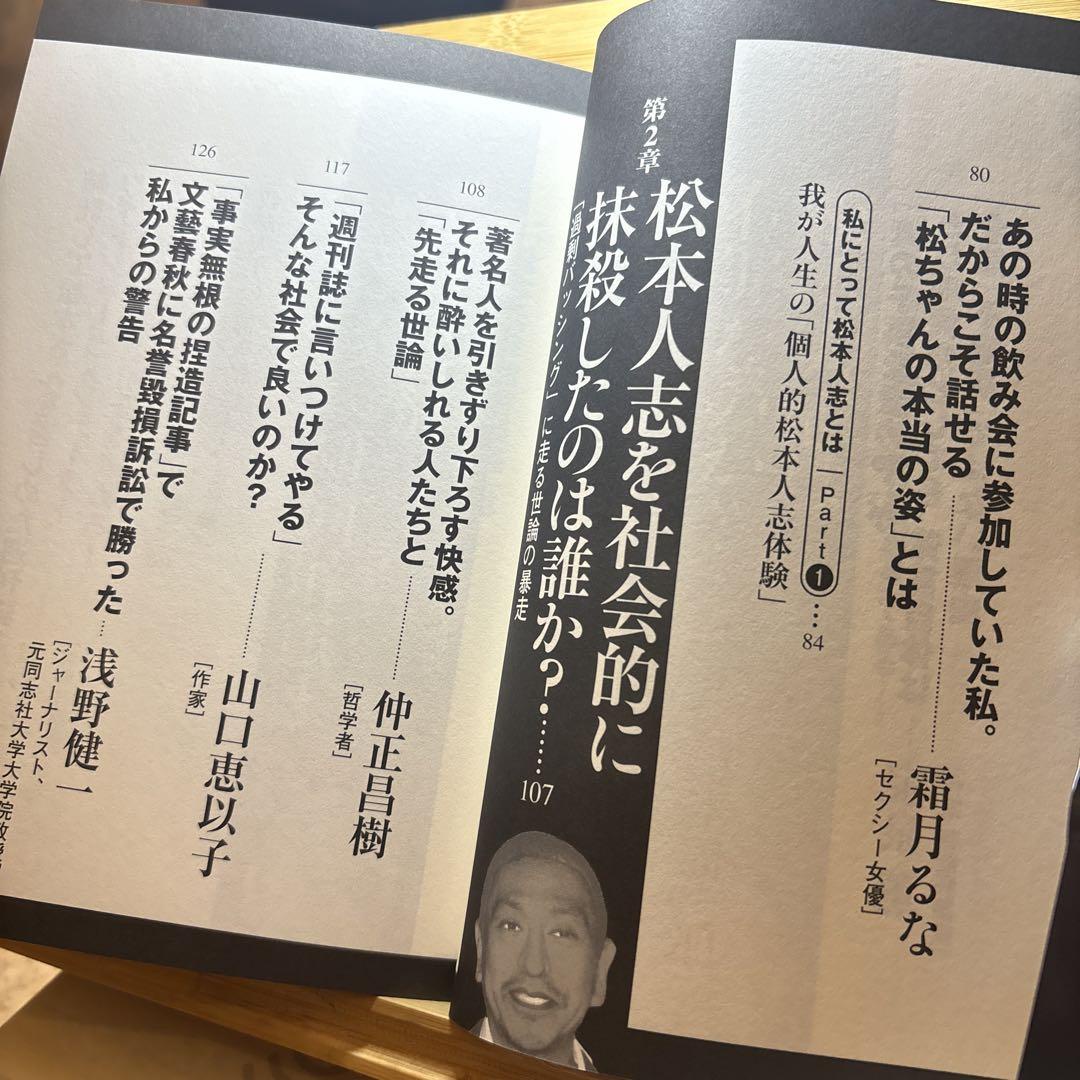 80
あの時の飲み会に参加していた私。
だからこそ話せる
「松ちゃんの本当の姿」とは
霜月るな
[セクシー女優]
私にとって松本人志とは Part❶…84
我が人生の「個人的松本人志体験」
第2章
松本人志を社会的に
抹殺したのは誰か?……107
「過剰バッシング」に走る世論の暴走
108
著名人を引きずり下ろす快感。
それに酔いしれる人たちと
「先走る世論」
仲正昌樹
[哲学者]
117
「週刊誌に言いつけてやる」
そんな社会で良いのか?
山口恵以子
[作家]
126
「事実無根の捏造記事」で
文藝春秋に名誉毀損訴訟で勝った
私からの警告
浅野健一
[ジャーナリスト、
元同志社大学大学院